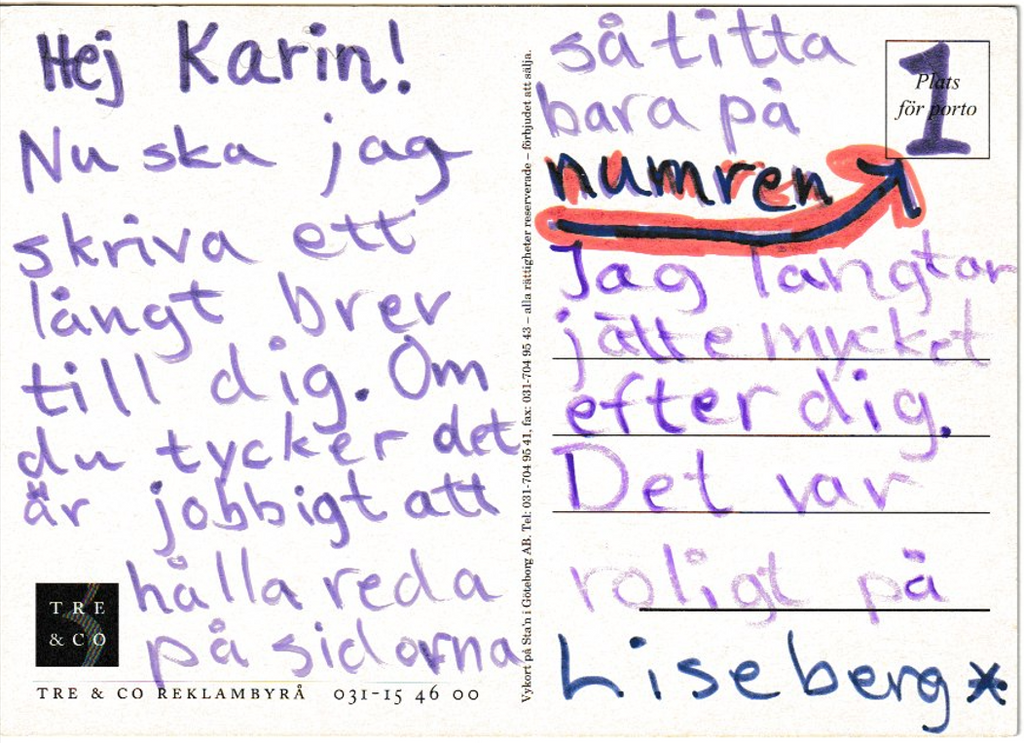 Hej Karin!
Nu ska jag
skriva ett
långt brev
till dig. Om
du tycker det
är jobbigt att
hålla reda
på sidorna
TRE
& CO
TRE & CO REKLAMBYRÅ 031-15 46 00
Vykort på Sta'n i Göteborg AB. Tel: 031-704 95 41, fax: 031-704 95 43 – alla rättigheter reserverade – förbjudet att sälja.
så titta
bara på
numren
1
Plats
för porto
Jag längtar
jätte mycket
efter dig.
Det var
roligt på
Liseberg*